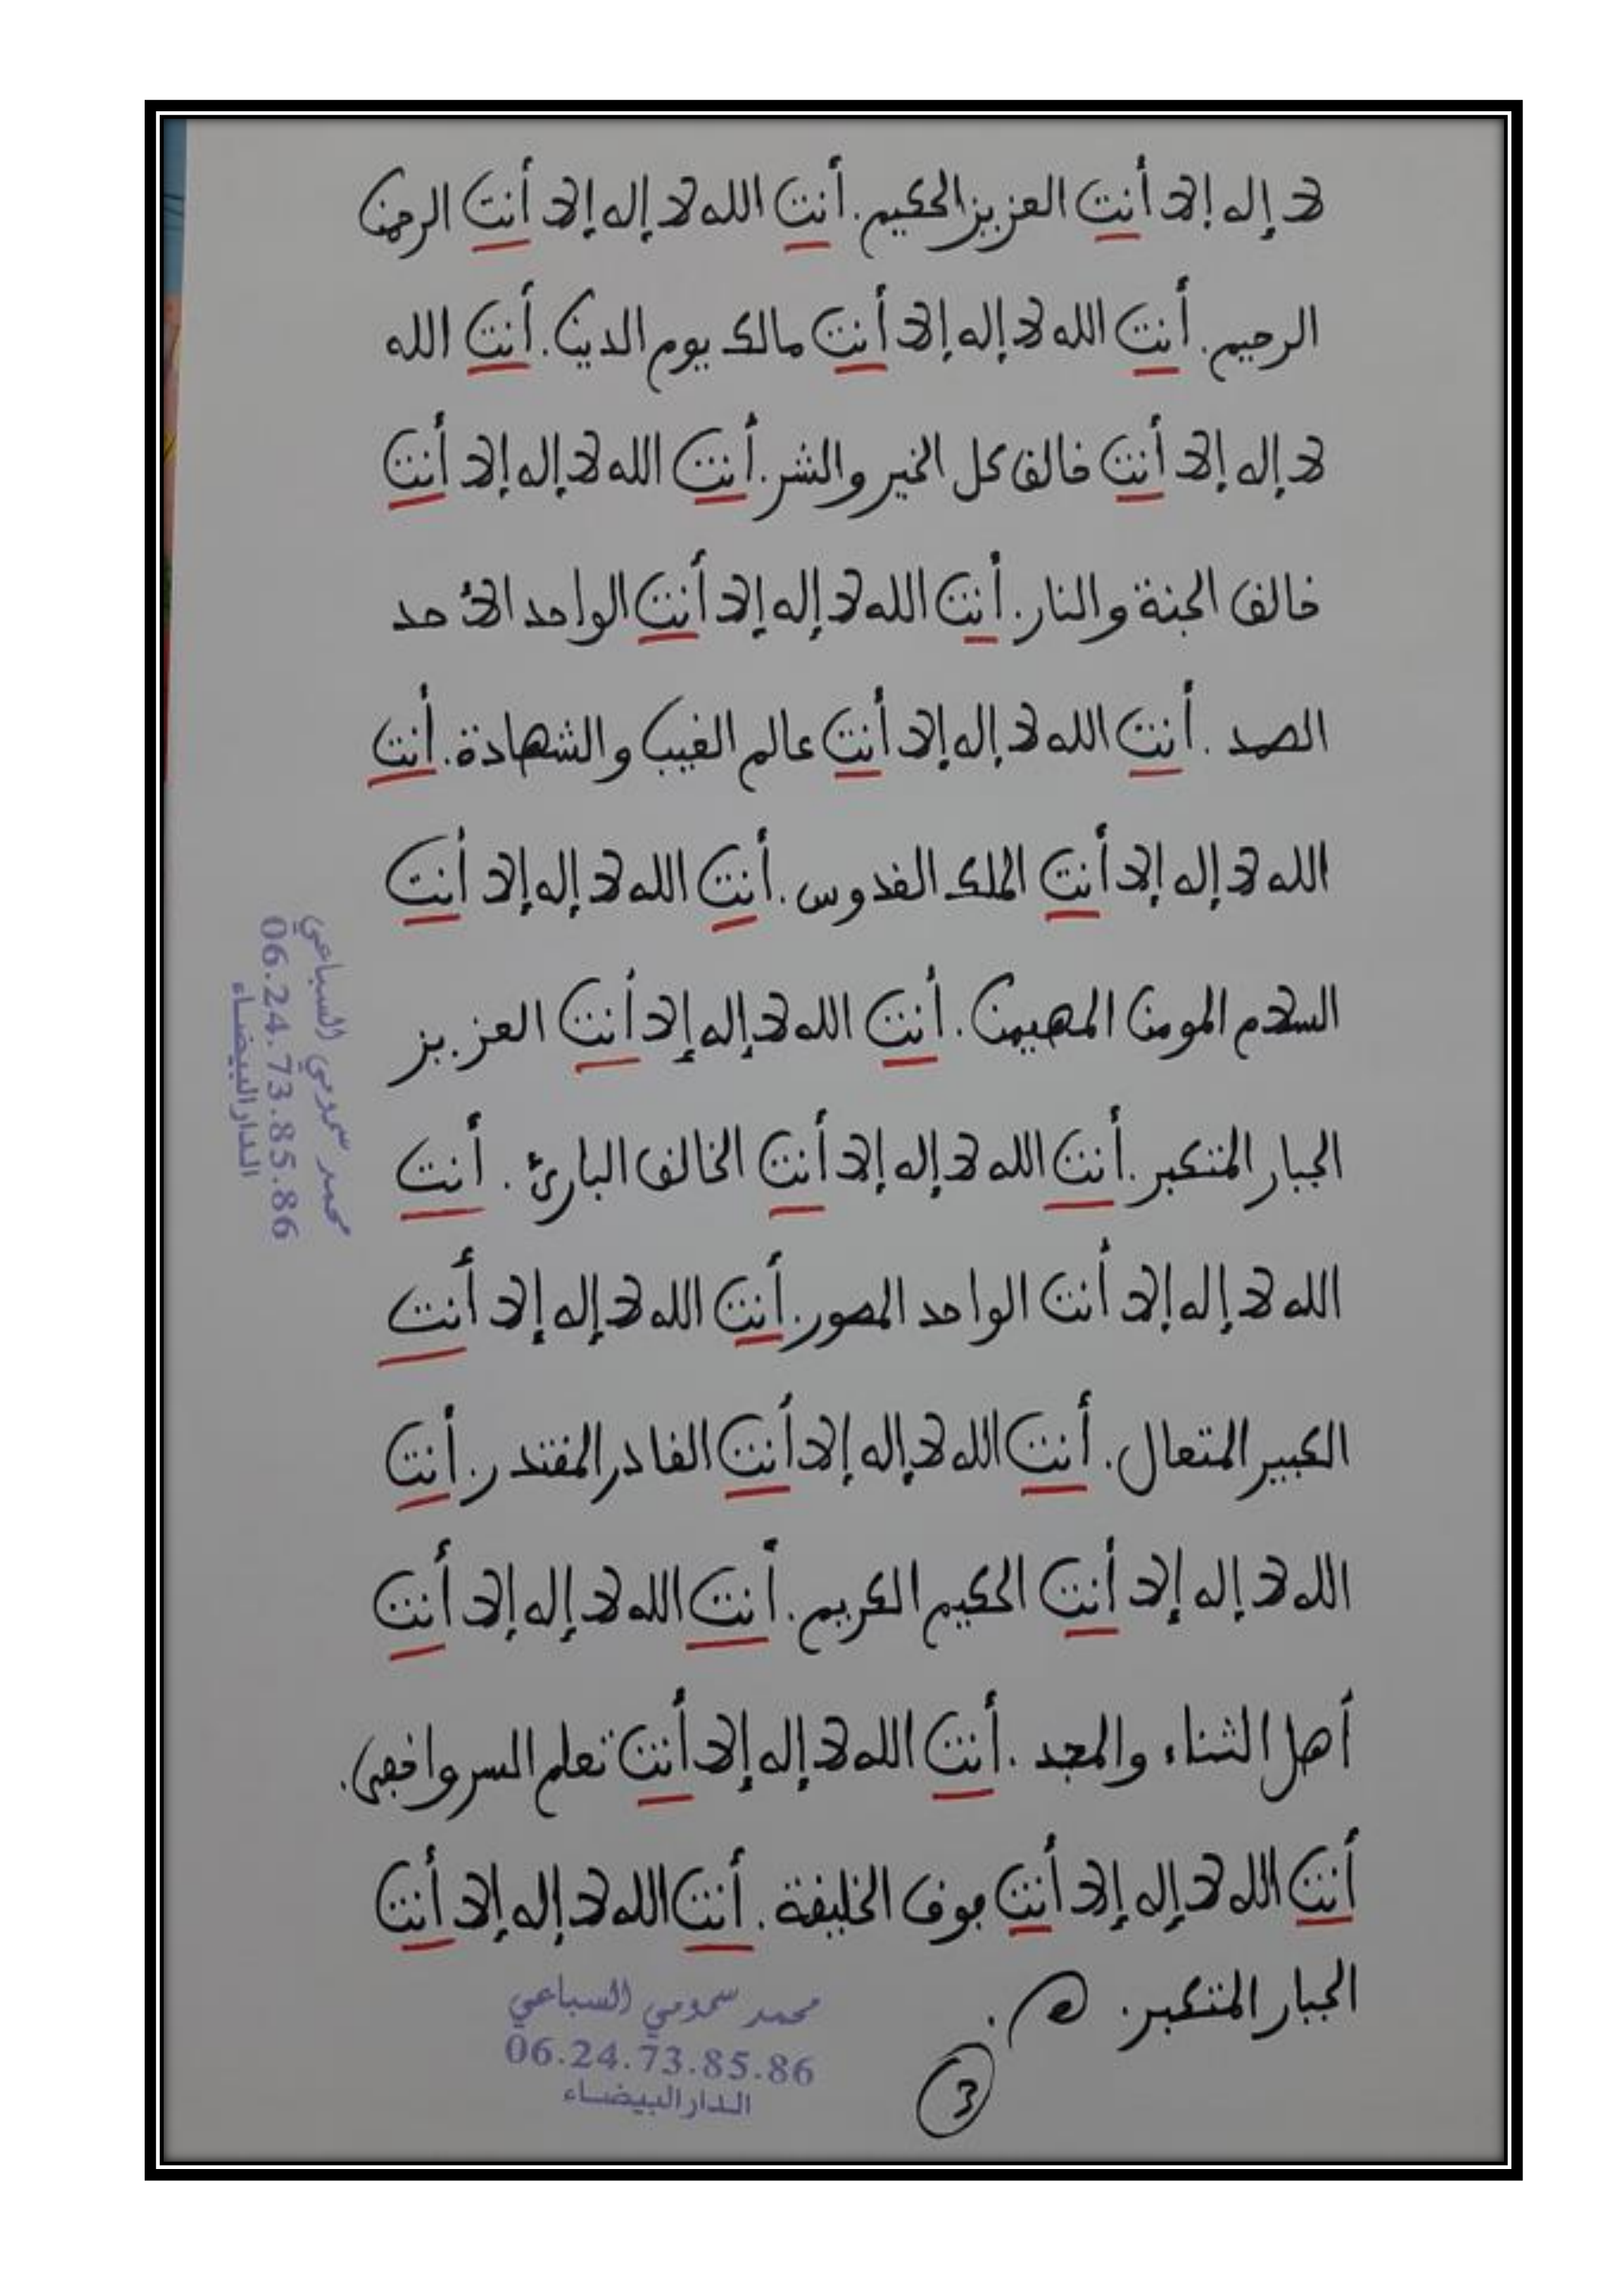 لا إله إلا أنت العزيز الحكيم. أنت الله لا إله إلا أنت الرحمن
الرحيم. أنت الله لا إله إلا أنت مالك يوم الدين. أنت الله
لا إله إلا أنت خالق كل الخير والشر. أنت الله لا إله إلا أنت
خالق الجنة والنار. أنت الله لا إله إلا أنت الواحد الأحد
الصمد. أنت الله لا إله إلا أنت عالم الغيب والشهادة. أنت
الله لا إله إلا أنت الملك القدوس. أنت الله لا إله إلا أنت
السلام المومن المهيمن. أنت الله لا إله إلا أنت العزيز
الجبار المتكبر. أنت الله لا إله إلا أنت الخالق البارئ. أنت
الله لا إله إلا أنت الواحد المصور. أنت الله لا إله إلا أنت
الكبير المتعال. أنت الله لا إله إلا أنت القادر المقتدر. أنت
الله لا إله إلا أنت الحكيم الكريم. أنت الله لا إله إلا أنت
أهل الثناء والمجد. أنت الله لا إله إلا أنت تعلم السر وأخفى.
أنت الله لا إله إلا أنت فوق الخليقة. أنت الله لا إله إلا أنت
الجبار المتكبر. اه.
3
محمد سمومي السباعي
06.24.73.85.86
الدار البيضاء
محمد سمومي السباعي
06.24.73.85.86
الدار البيضاء